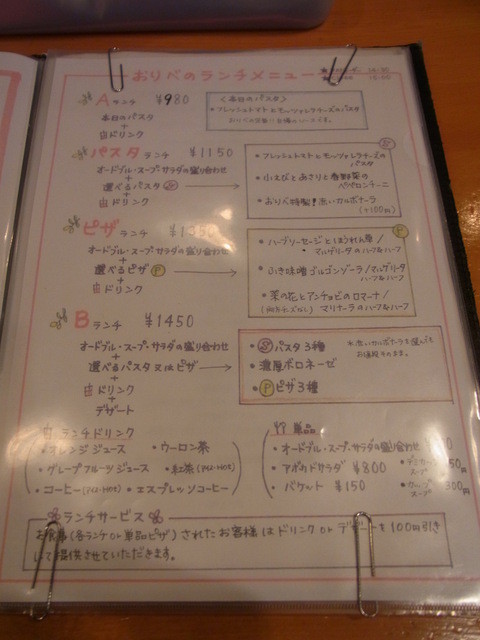 おりべのランチメニュー
Aランチ ¥980
本日のパスタ
+
ドリンク
<本日のパスタ>
・フレッシュトマトとモッツァレラチーズのパスタ
パスタランチ ¥1150
オードブル・スープ・サラダの盛り合わせ
+
選べるパスタ
+
ドリンク
・フレッシュトマトとモッツァレラチーズの
パスタ
・小えびとあさりと春野菜の
ペペロンチーニ
・おりべ特製!濃いカルボナーラ
(+100円)
ピザランチ
オードブル・スープ・サラダの盛り合わせ
+
選べるピザ P
+
ドリンク
・ハーブソーセージとほうれん草/
マルゲリータのハーフ&ハーフ
ゴルゴンゾーラ/マルゲリータ
ハーフ&ハーフ
・菜の花とアンチョビのロマーナ/
マリナーラのハーフ&ハーフ
Bランチ ¥1450
オードブル・スープ・サラダの盛り合わせ
+
選べるパスタ又はピザ
+
ドリンク
+
デザート
・パスタ3種
・濃厚ボロネーゼ
・Pピザ3種
※濃いカルボナーラを選んでも
お値段そのまま。
ランチドリンク
・オレンジジュース ・ウーロン茶
・グレープフルーツジュース ・紅茶(ICE・HOT)
・コーヒー(ICE・HOT) ・エスプレッソコーヒー
単品
・オードブル・スープ・サラダ盛り合わせ
・アボカドサラダ ¥800
・バケット ¥150
スープ 300円
ランチサービス
お食事(各ランチor単品ピザ)されたお客様はドリンクorデザートを100円引き
して提供させていただきます。